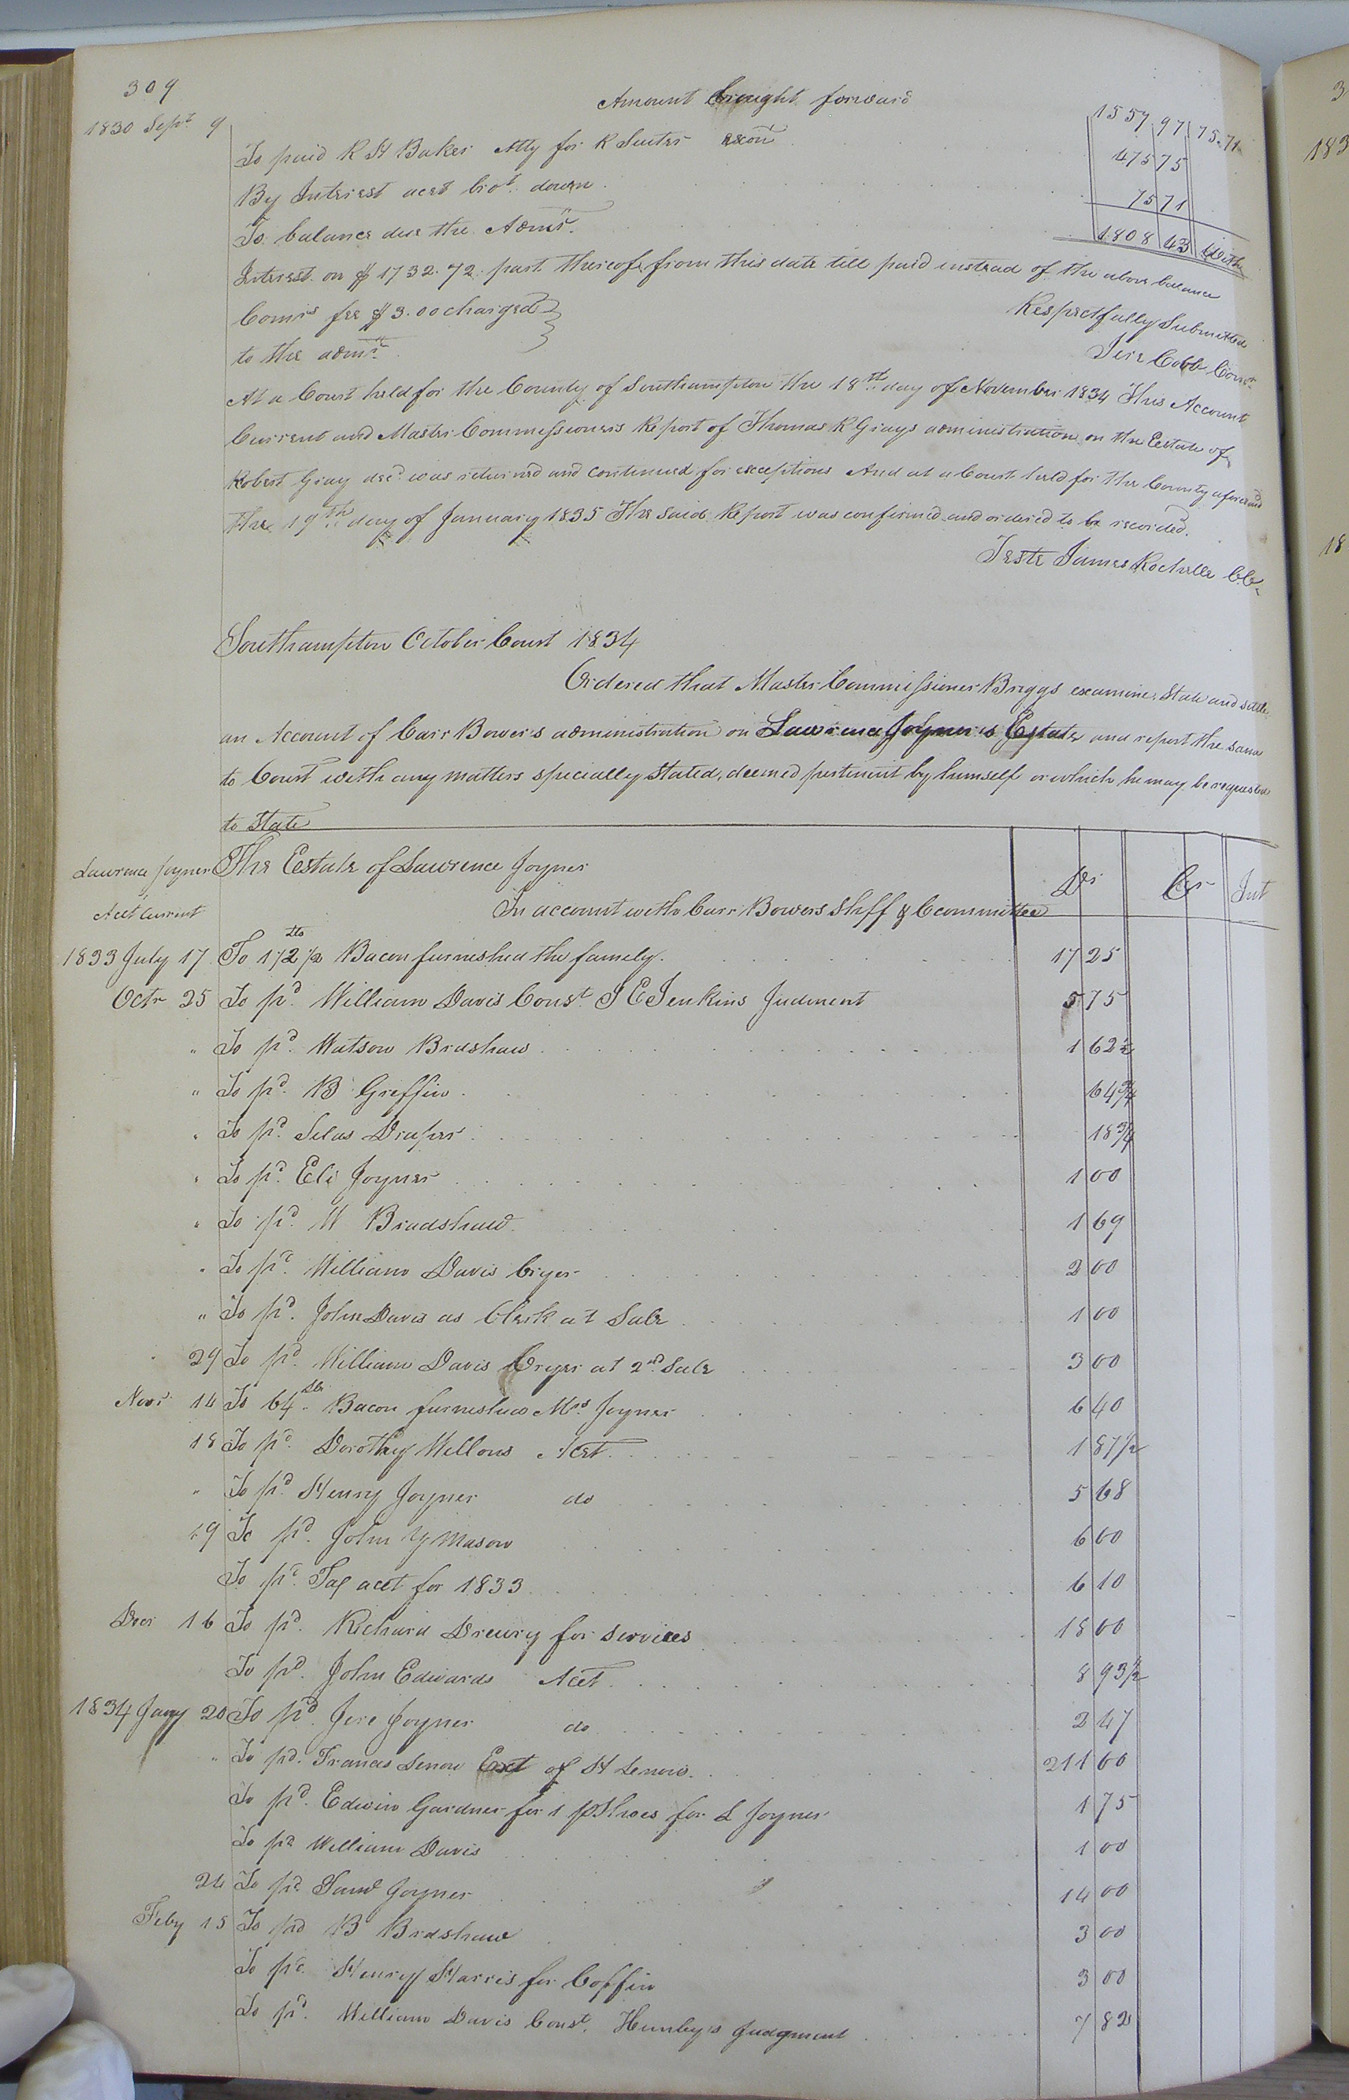 309
Amount brought forward 1557 97 75.71
1830 Sept 9
To paid R H Baker Atty for R Suiter 475 75
By Interest acct brot. down 75 71
To balance due the Admr. 1808 43 With
Interest on $1732.72 part thereof from this date till paid instead of the above balance
Comrs fee $3.00 charged
to the admr.
Respectfully Submitted
Jere Cobb Comr.
At a Court held for the County of Southampton the 18th day of November 1834 This Account
Current and Master Commissioners Report of Thomas R Grays administration on the Estate of
Robert Gray decd. was returned and continued for exceptions And at a Court held for the County aforesaid
the 19th day of January 1835 The said Report was confirmed and ordered to be recorded.
Teste James Rochelle CC.
Southampton October Court 1834
Ordered that Master Commissioner Briggs examine, State and settle
an Account of Carr Bowers administration on Lawrence Joyner's Estate and report the same
to Court with any matters specially stated, deemed pertinent by himself or which he may be requested
to State
Lawrence Joyner The Estate of Lawrence Joyner Dr Cr Int
Acct Current In account with Carr Bowers Shff & Committee
1833 July 17 To 172 1/2 lbs Bacon furnished the family. 17 25
Octr 25 To pd. William Davis Const. J E Jenkins Judment 5 75
" To pd. Watson Bradshaw 1 62 1/2
" To pd. B Griffin 64 3/4
" To pd. Silas Draper 18 3/4
" To pd. Eli Joyner 1 00
" To pd. W Bradshaw 1 69
" To pd. William Davis Cryer 2 00
" To pd. John Davis as Clerk at Sale 1 00
29 To pd. William Davis Cryer at 2nd Sale 3 00
Novr 14 To 64 lb. Bacon furnished Mrs Joyner 6 40
18 To pd. Dorothy Wellons Acct. 1 87 1/2
" To pd. Henry Joyner do 5 68
29 To pd. John Y Mason 6 00
To pd. Tax acct for 1833 6 10
Decr 16 To pd. Richard Drewry for services 18 00
To pd. John Edwards Acct 8 93 1/2
1834 Jany 20 To pd. Jere Joyner do 2 47
" To pd. Francis Lenow Ext of H Lenow. 211 00
To pd. Edwin Gardner for 1 p Shoes for L Joyner 1 75
To pd William Davis 1 00
24 To pd Saml Joyner 14 00
Feby 15 To pd B Bradshaw 3 00
To pd. Henry Harris for Coffin 3 00
To pd. William Davis Const. Hunley's Judgment 7 82
3
183
18